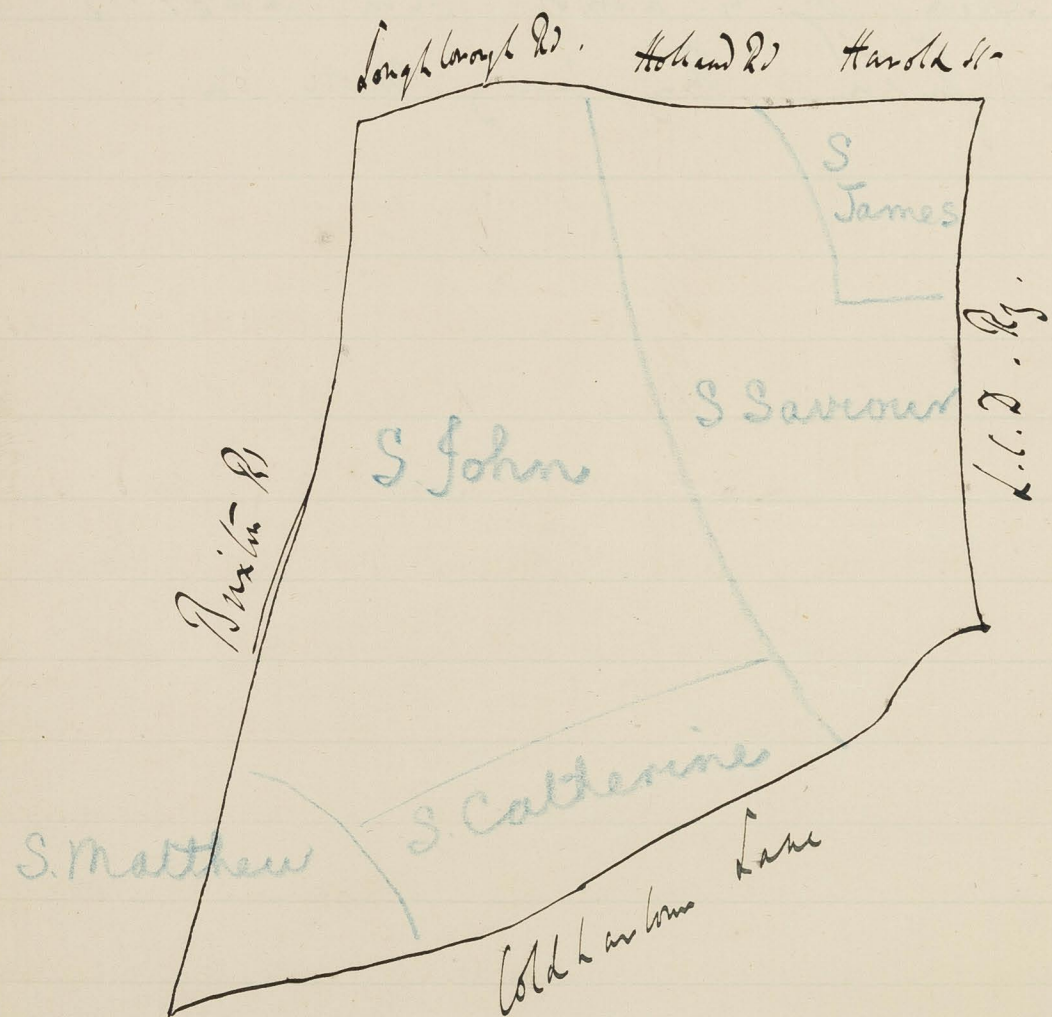 Loughborough Rd. Holland Rd Harold St
S
James
S Saviour
L.C.D. Ry.
S. John
Brixton Rd
S. Catherine
S. Matthew
Coldharbour Lane